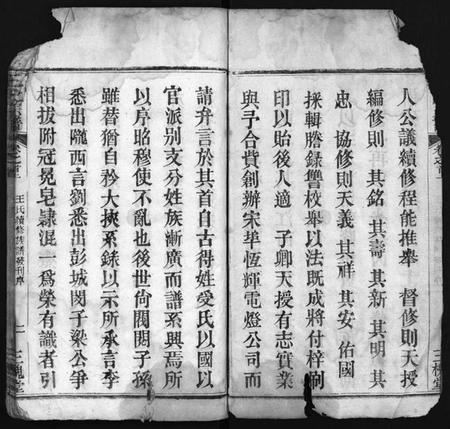 人公議續修程能推舉　督修則天授
編修則　其銘　其壽　其新　其明　其
忠　以協修則天義　其祥　其安　佑國
採輯謄錄讐校舉以法既成將付梓刷
印以貽後人適　子卿天授有志實業
與予合貲創辦宋埠恆輝電燈公司而
請弁言於其首自古得姓受氏以國以
官派别支分姓族漸廣而譜系興焉所
以序昭穆使不亂也後世尙閥閱子孫
雖替猶自矜大挾系錄以示所承言李
悉出隴西言劉悉出彭城閔子梁公爭
相拔附冠冕皂隷混一爲榮有識者引
王氏續修族譜發刊序
一
三槐堂
卷之首
三槐堂